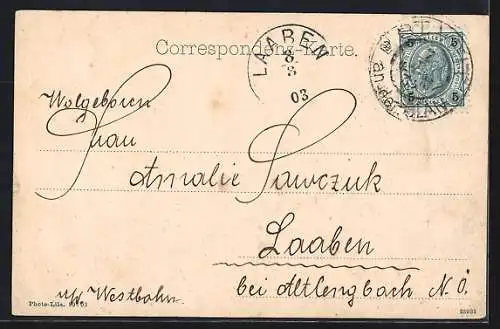 Correspondenz-Karte.
LAABEN
8
3
03
5 5
5 5
Wolgeboren
Frau
Amalie Sawczuk
Laaben
bei Altlengbach N.Ö.
Westbahn.
Photo-Lila.